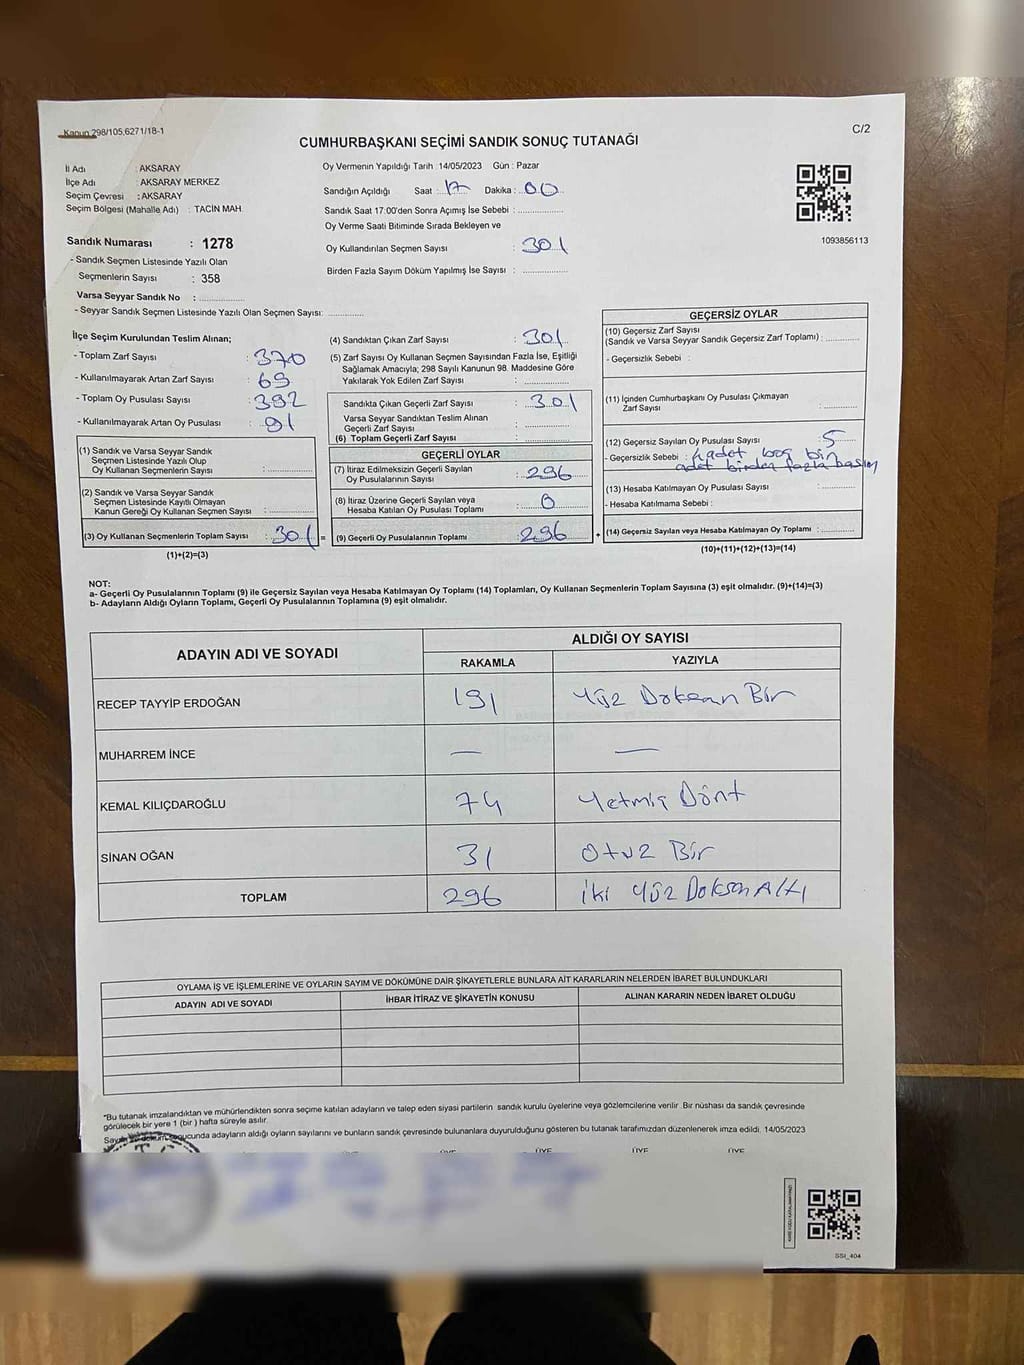 Kanun 298/105,6271/18-1
C/2
CUMHURBAŞKANI SEÇİMİ SANDIK SONUÇ TUTANAĞI
İl Adı : AKSARAY
İlçe Adı : AKSARAY MERKEZ
Seçim Çevresi : AKSARAY
Seçim Bölgesi (Mahalle Adı) : TACİN MAH.
Sandık Numarası : 1278
- Sandık Seçmen Listesinde Yazılı Olan
Seçmenlerin Sayısı : 358
Varsa Seyyar Sandık No : ..............
- Seyyar Sandık Seçmen Listesinde Yazılı Olan Seçmen Sayısı: ..............
Oy Vermenin Yapıldığı Tarih :14/05/2023 Gün : Pazar
Sandığın Açıldığı Saat : 17 Dakika : 00
Sandık Saat 17:00'den Sonra Açmış İse Sebebi : ..............
Oy Verme Saati Bitiminde Sırada Bekleyen ve
Oy Kullandırılan Seçmen Sayısı : 301
Birden Fazla Sayım Döküm Yapılmış İse Sayısı : ..............
1093856113
İlçe Seçim Kurulundan Teslim Alınan;
- Toplam Zarf Sayısı : 370
- Kullanılmayarak Artan Zarf Sayısı : 69
- Toplam Oy Pusulası Sayısı : 392
- Kullanılmayarak Artan Oy Pusulası : 91
(1) Sandık ve Varsa Seyyar Sandık
Seçmen Listesinde Yazılı Olup
Oy Kullanan Seçmenlerin Sayısı : ..............
(2) Sandık ve Varsa Seyyar Sandık
Seçmen Listesinde Kayıtlı Olmayan
Kanun Gereği Oy Kullanan Seçmen Sayısı : ..............
(3) Oy Kullanan Seçmenlerin Toplam Sayısı : 301 =
(1)+(2)=(3)
(4) Sandıktan Çıkan Zarf Sayısı : 301
(5) Zarf Sayısı Oy Kullanan Seçmen Sayısından Fazla İse, Eşitliği
Sağlamak Amacıyla; 298 Sayılı Kanunun 98. Maddesine Göre
Yakılarak Yok Edilen Zarf Sayısı : ..............
Sandıkta Çıkan Geçerli Zarf Sayısı : 301
Varsa Seyyar Sandıktan Teslim Alınan
Geçerli Zarf Sayısı : ..............
(6) Toplam Geçerli Zarf Sayısı : ..............
GEÇERLİ OYLAR
(7) İtiraz Edilmeksizin Geçerli Sayılan
Oy Pusulalarının Sayısı : 296
(8) İtiraz Üzerine Geçerli Sayılan veya
Hesaba Katılan Oy Pusulası Toplamı : 0
(9) Geçerli Oy Pusulalarının Toplamı : 296 +
GEÇERSİZ OYLAR
(10) Geçersiz Zarf Sayısı
(Sandık ve Varsa Seyyar Sandık Geçersiz Zarf Toplamı) : ..............
- Geçersizlik Sebebi :
(11) İçinden Cumhurbaşkanı Oy Pusulası Çıkmayan
Zarf Sayısı : ..............
(12) Geçersiz Sayılan Oy Pusulası Sayısı : 5
- Geçersizlik Sebebi : 4 adet boş bir
adet birden fazla basım
(13) Hesaba Katılmayan Oy Pusulası Sayısı : ..............
- Hesaba Katılmama Sebebi :
(14) Geçersiz Sayılan veya Hesaba Katılmayan Oy Toplamı : ..............
(10)+(11)+(12)+(13)=(14)
NOT:
a- Geçerli Oy Pusulalarının Toplamı (9) ile Geçersiz Sayılan veya Hesaba Katılmayan Oy Toplamı (14) Toplamları, Oy Kullanan Seçmenlerin Toplam Sayısına (3) eşit olmalıdır. (9)+(14)=(3)
b- Adayların Aldığı Oyların Toplamı, Geçerli Oy Pusulalarının Toplamına (9) eşit olmalıdır.
ADAYIN ADI VE SOYADI
ALDIĞI OY SAYISI
RAKAMLA YAZIYLA
RECEP TAYYİP ERDOĞAN 191 Yüz Doksan Bir
MUHARREM İNCE — —
KEMAL KILIÇDAROĞLU 74 Yetmiş Dört
SİNAN OĞAN 31 Otuz Bir
TOPLAM 296 İki Yüz Doksan Altı
OYLAMA İŞ VE İŞLEMLERİNE VE OYLARIN SAYIM VE DÖKÜMÜNE DAİR ŞİKAYETLERLE BUNLARA AİT KARARLARIN NELERDEN İBARET BULUNDUKLARI
ADAYIN ADI VE SOYADI İHBAR İTİRAZ VE ŞİKAYETİN KONUSU ALINAN KARARIN NEDEN İBARET OLDUĞU
*Bu tutanak imzalandıktan ve mühürlendikten sonra seçime katılan adayların ve talep eden siyasi partilerin sandık kurulu üyelerine veya gözlemcilerine verilir. Bir nüshası da sandık çevresinde
görülecek bir yere 1 (bir ) hafta süreyle asılır.
adayların aldığı oyların sayılarını ve bunların sandık çevresinde bulunanlara duyurulduğunu gösteren bu tutanak tarafımızdan düzenlenerek imza edildi. 14/05/2023
T.C.
ÜYE ÜYE ÜYE ÜYE ÜYE
SSI_404